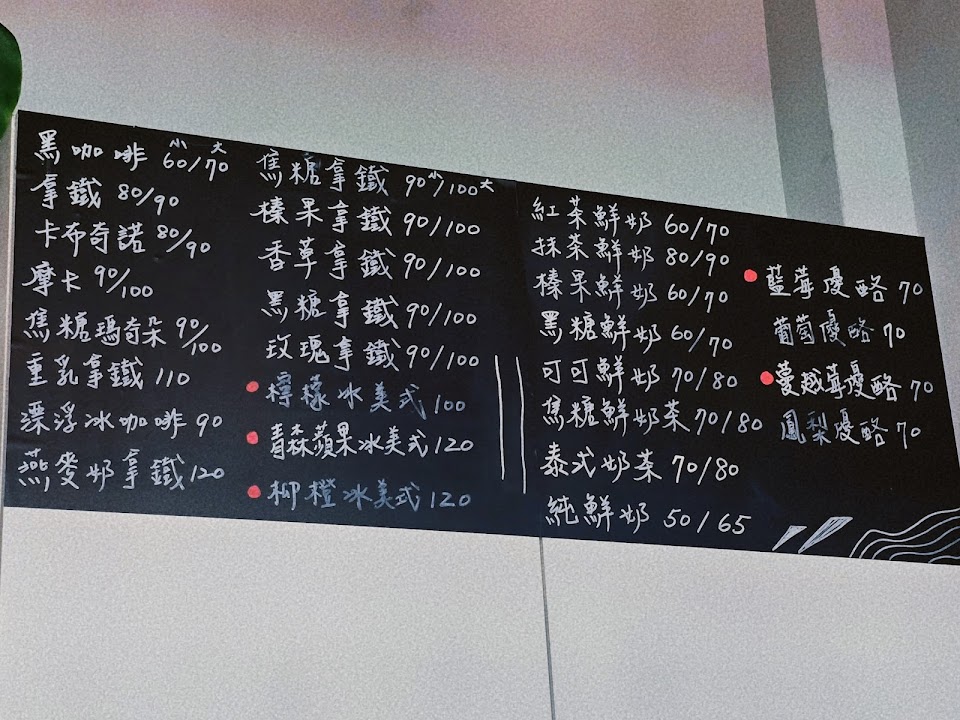 小 大
黑咖啡 60/70
拿鐵 80/90
卡布奇諾 80/90
摩卡 90/100
焦糖瑪奇朵 90/100
重乳拿鐵 110
漂浮冰咖啡 90
燕麥奶拿鐵 120
焦糖拿鐵 90小/100大
榛果拿鐵 90/100
香草拿鐵 90/100
黑糖拿鐵 90/100
玫瑰拿鐵 90/100
檸檬冰美式 100
青森蘋果冰美式 120
柳橙冰美式 120
紅茶鮮奶 60/70
抹茶鮮奶 80/90
榛果鮮奶 60/70
黑糖鮮奶 60/70
可可鮮奶 70/80
焦糖鮮奶茶 70/80
泰式奶茶 70/80
純鮮奶 50/65
藍莓優酪 70
葡萄優酪 70
蔓越莓優酪 70
鳳梨優酪 70